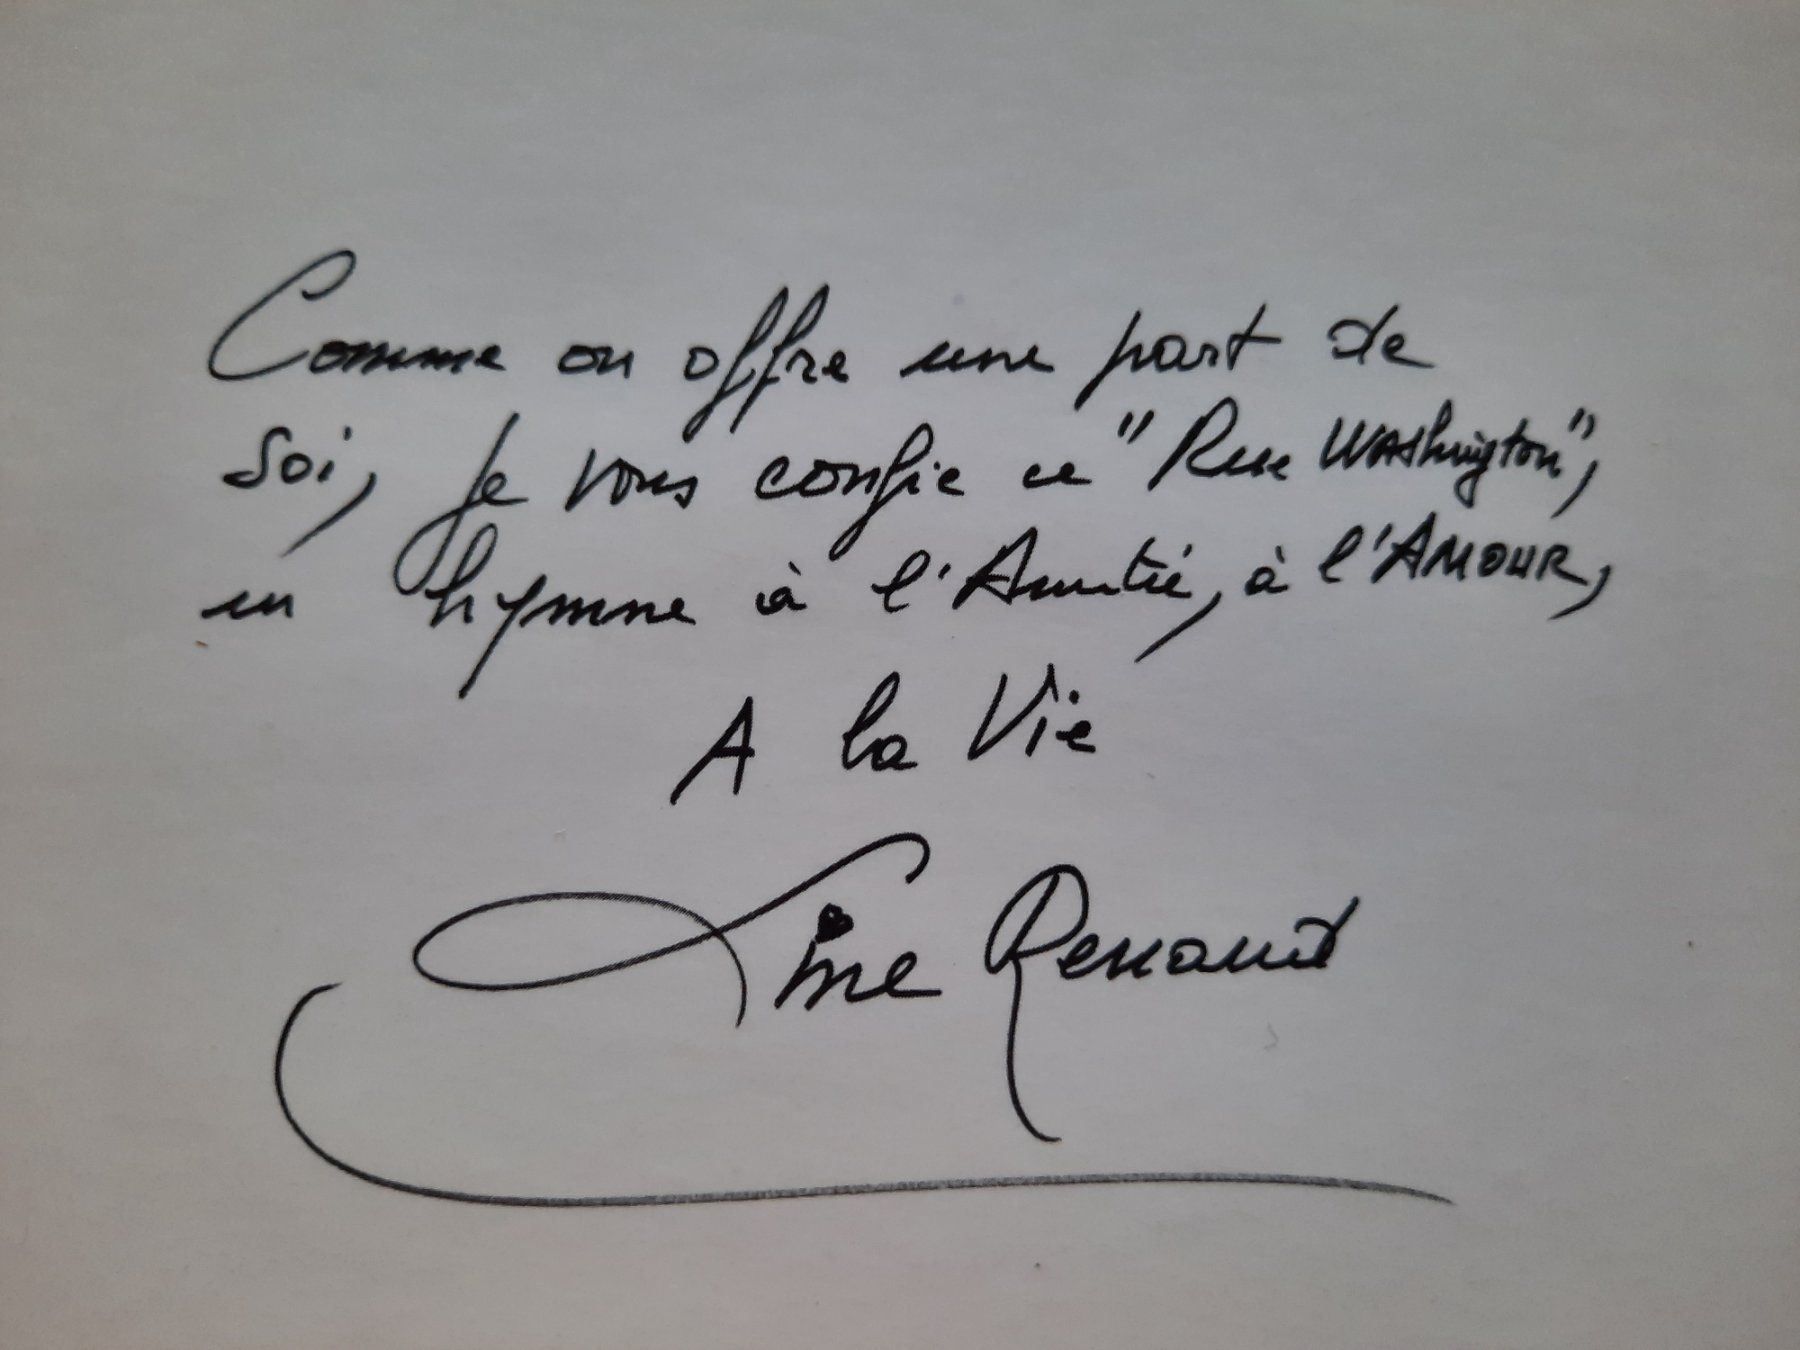 Comme on offre une part de
soi, je vous confie ce "Rue WAShington",
un hymne à l'Amitié, à l'AMOUR,
A la Vie
Line Renaud